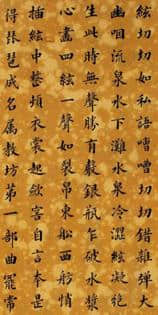 絃切切如私語嘈嘈切切錯雜彈大
幽咽流泉水下灘水泉冷澀絃凝絶
生此時無聲勝有聲銀瓶乍破水漿
心畫四絃一聲如裂帛東船西舫悄
插絃中整頓衣裳起斂容自言本是
得琵琶成名属教坊第一部曲罷常